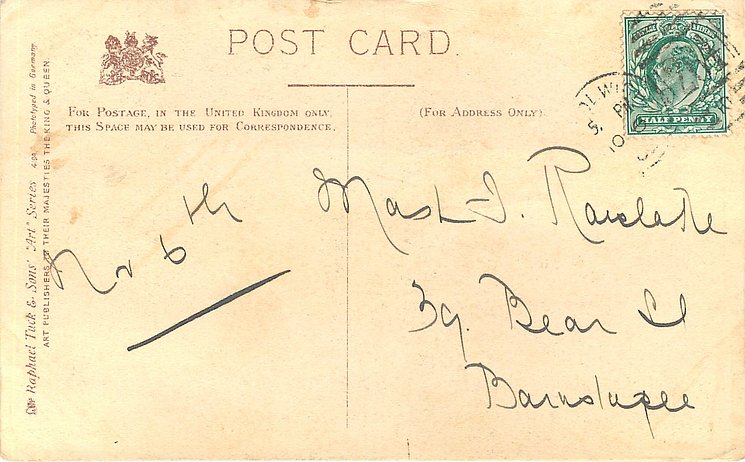 POST CARD.
FOR POSTAGE, IN THE UNITED KINGDOM ONLY,
THIS SPACE MAY BE USED FOR CORRESPONDENCE.
(FOR ADDRESS ONLY).
HALF PENNY
No 6th
Mast J.
39. Bear St
Barnstaple
Raphael Tuck & Sons' "Art" Series Phototyped in Germany
ART PUBLISHERS TO THEIR MAJESTIES THE KING & QUEEN.